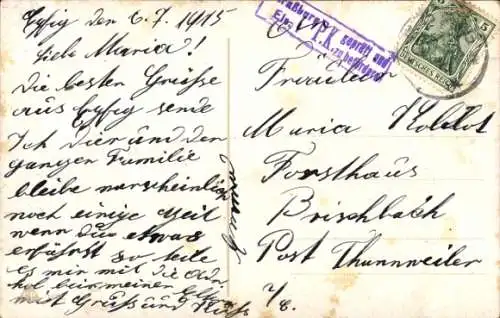 den 6.7.1915
Liebe Maria!
Die besten Grüsse
aus sende
Ich Dir und der
ganzen Familie
bleibe warscheinlich
noch einige Zeit
wenn Du etwas
erfährst so teile
es mir mit
bei meiner
mit Gruß und Kuß
geprüft und
P.K. zu befördern
5
DEUTSCHES REICH
Fräulein
Maria
Forsthaus
Brischbach
Post Thannweiler
i/E.